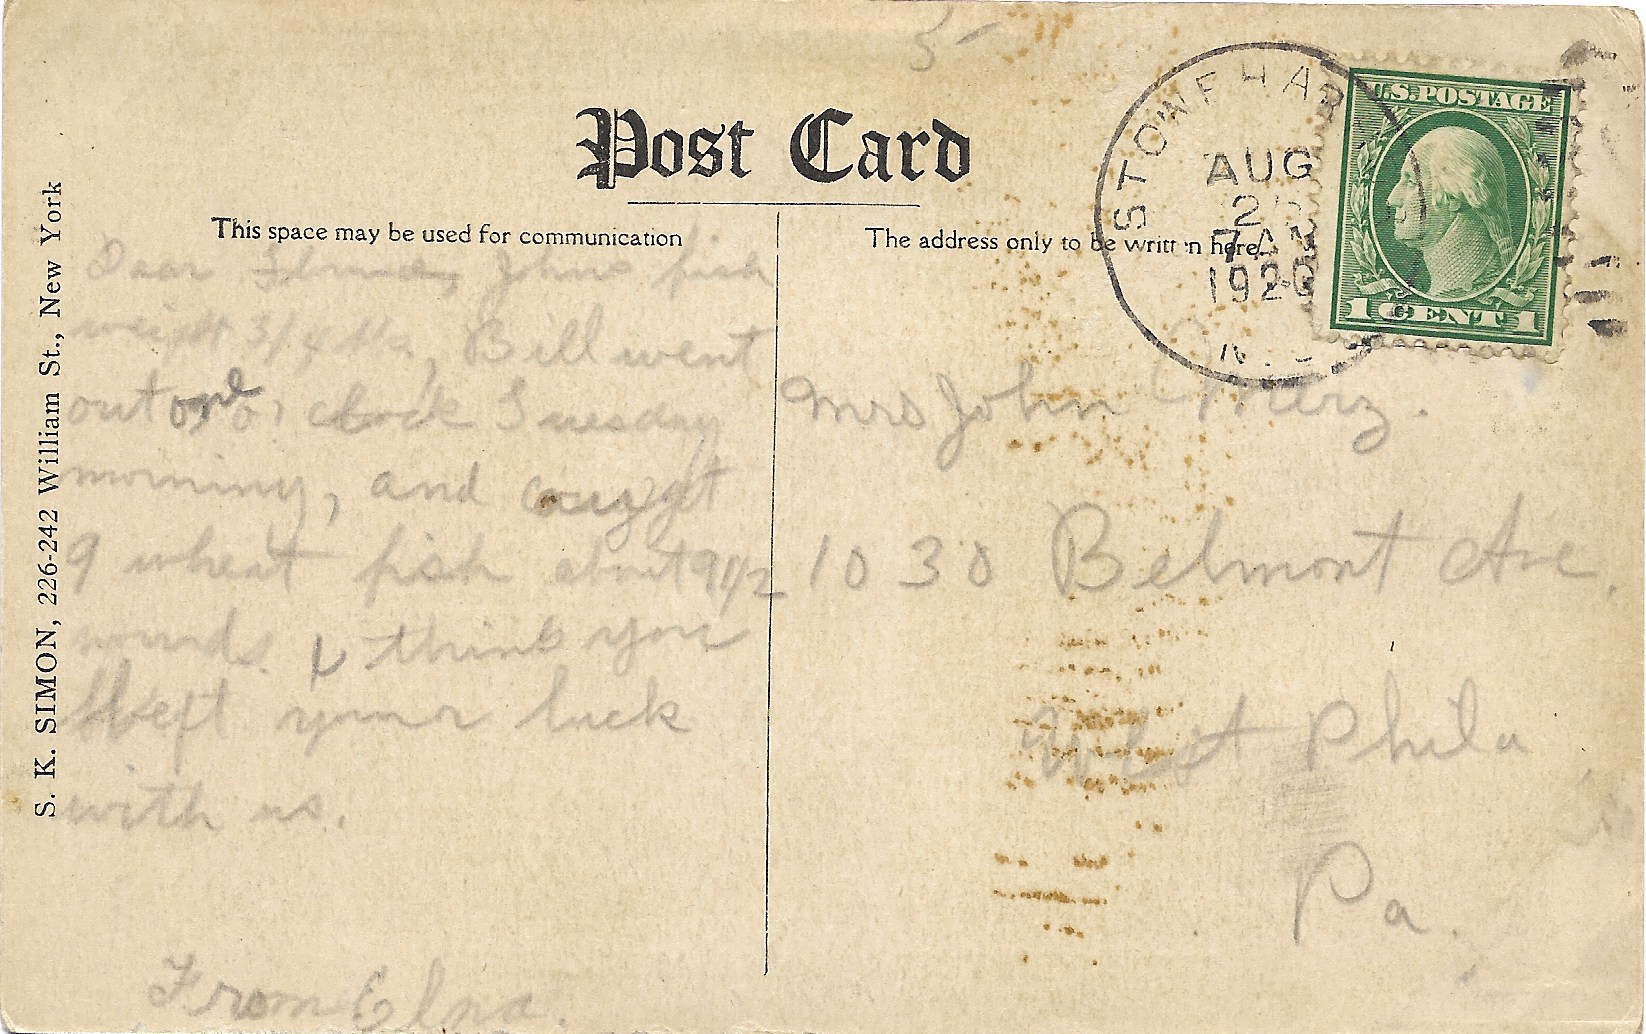 5-
Post Card
This space may be used for communication
The address only to be written here
S. K. SIMON, 226-242 William St., New York
STONE HAR
AUG
2
7 AM
1920
N.
U.S. POSTAGE
1 CENT 1
Dear Johns fish
weight 3/4 lbs, Bill went
out one o, clock Tuesday
morning, and caught
9 wheat fish about 9 1/2
pounds. I think you
kept your luck
with us.
From Elna.
Mrs John Merz.
1030 Belmont Ave.
West Phila
Pa.